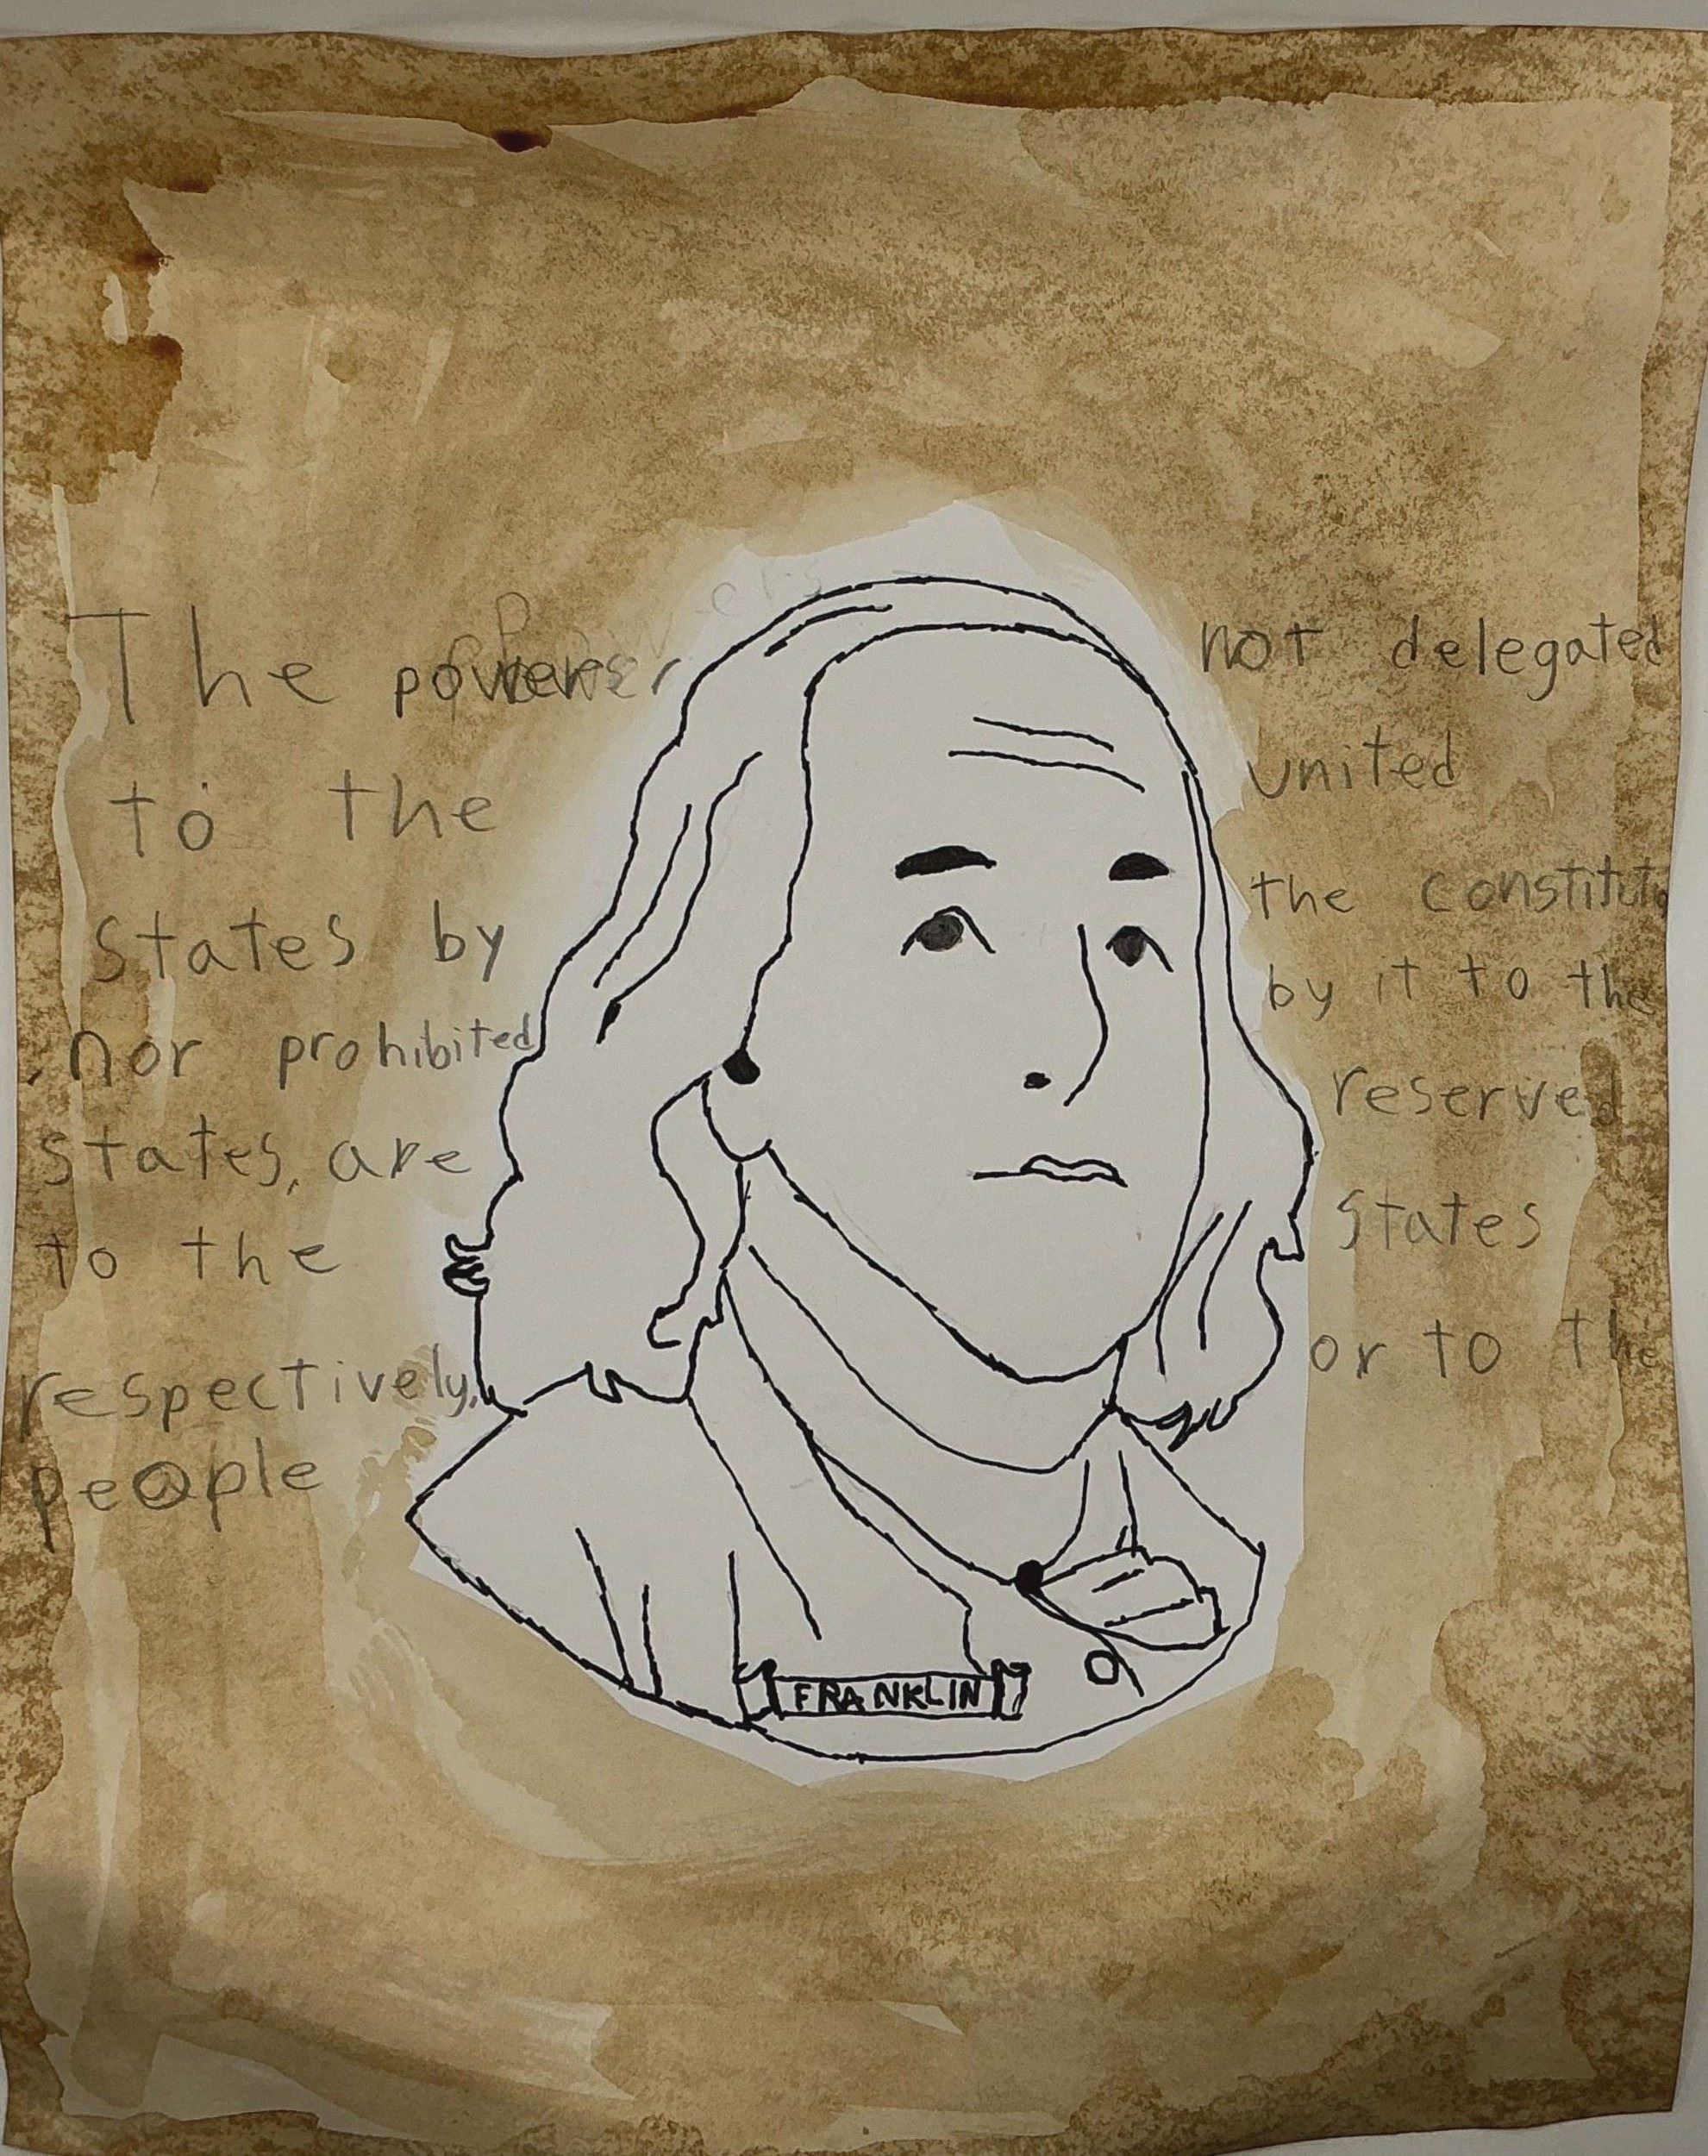 The powers not delegated
to the united
states by the constitutio
nor prohibited by it to the
states, are reserved
to the states
respectively, or to the
people
FRANKLIN